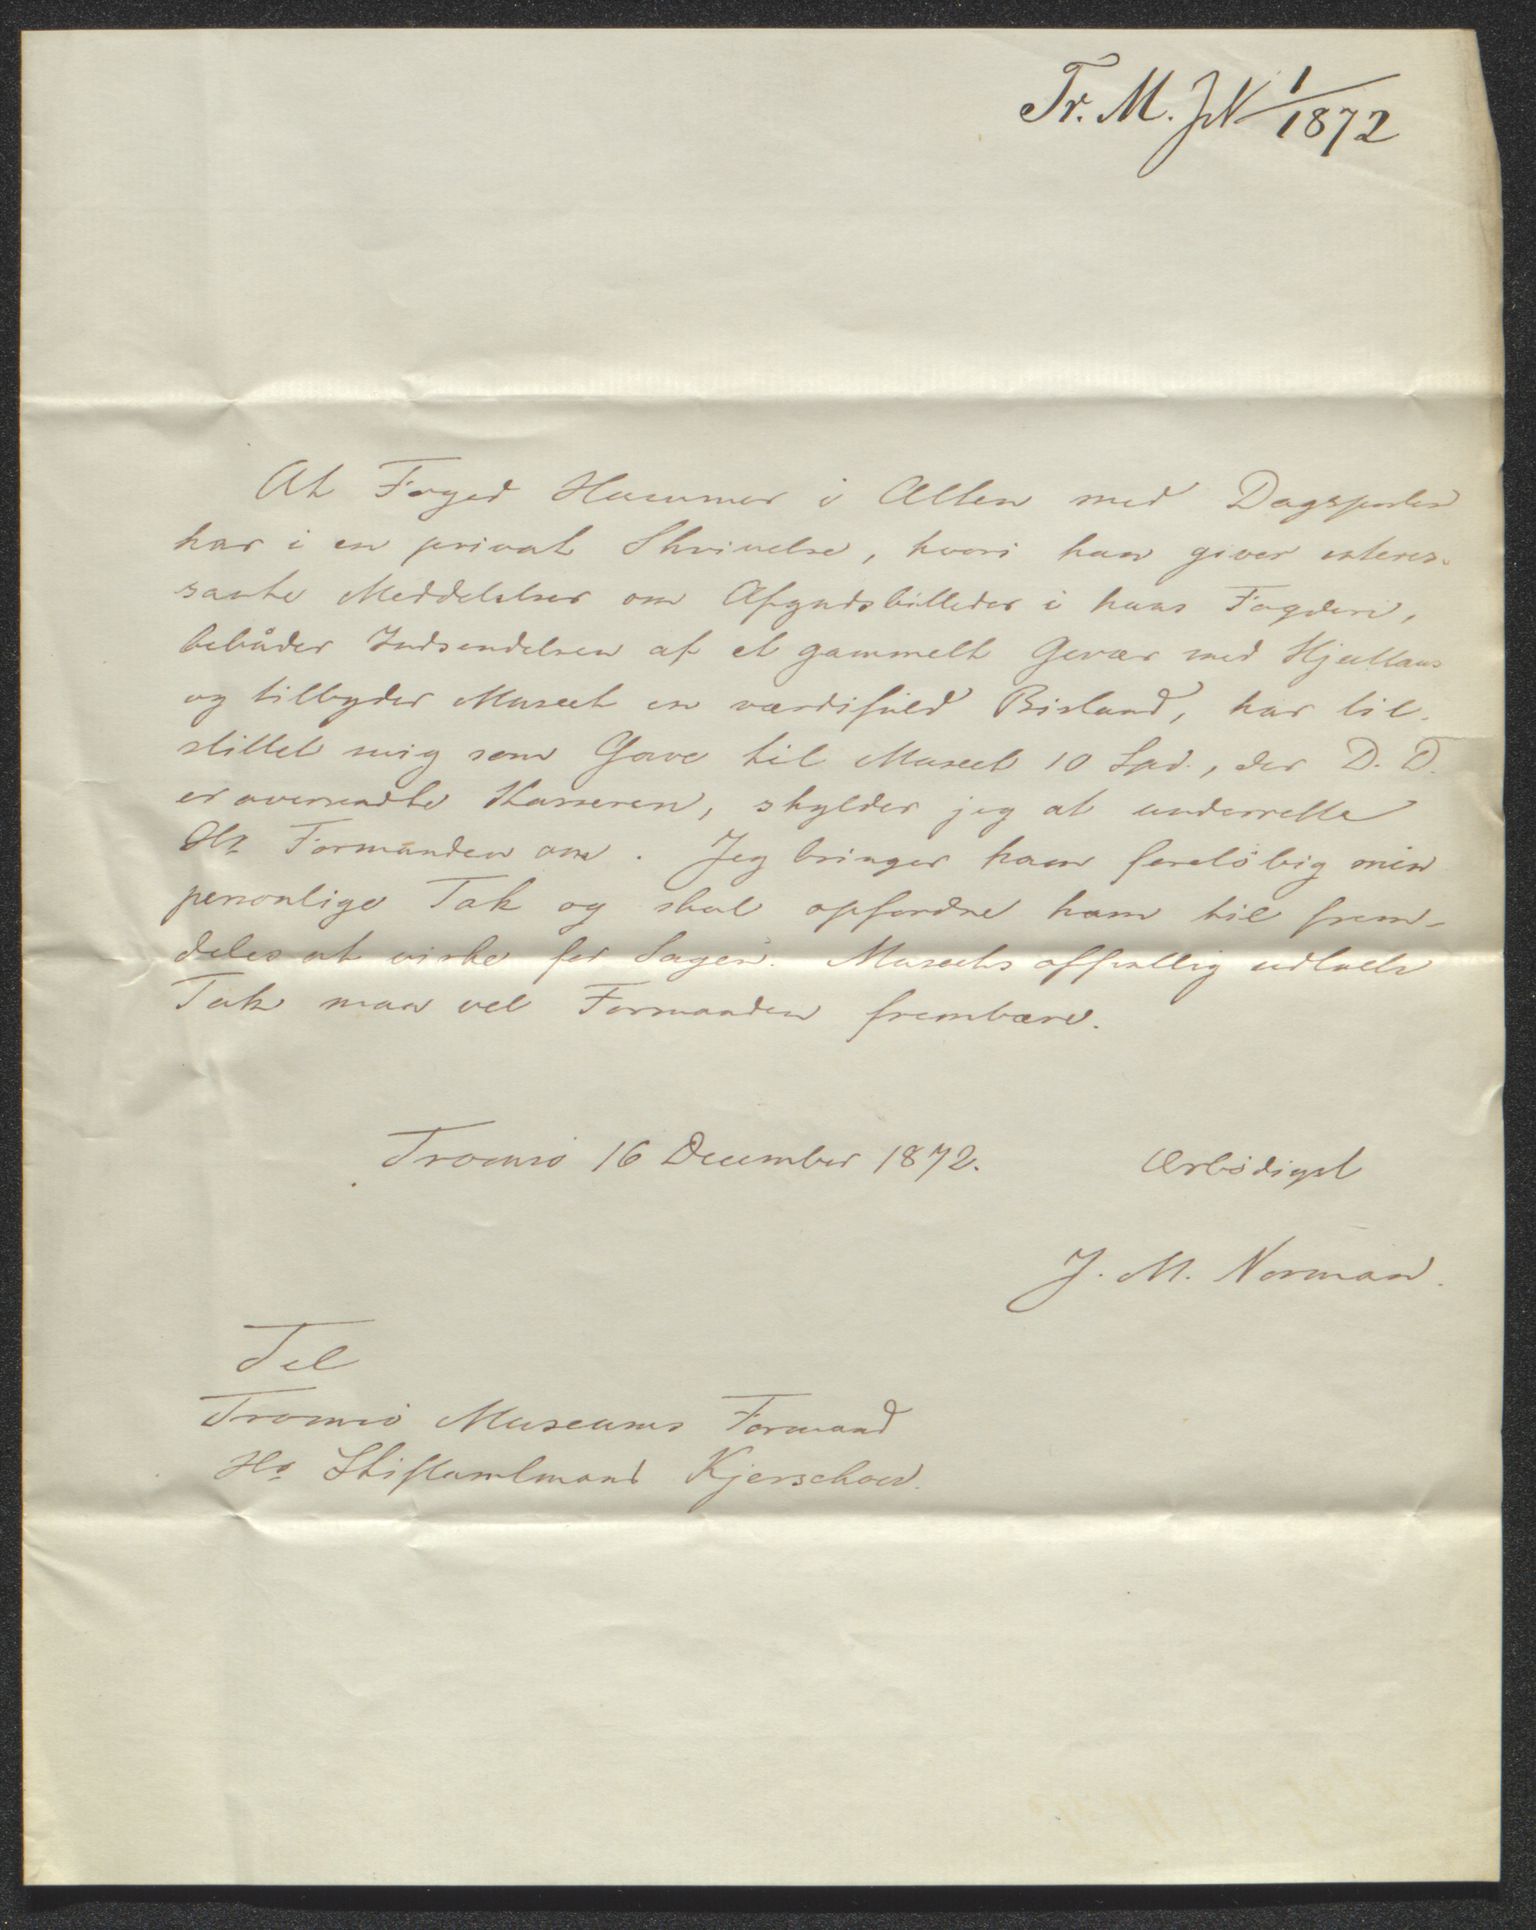 Tr. M. JN 1/1872
At Foged Hammer i Alten med Dagsposten
har i en privat Skrivelse, hvori han giver interes-
sante Meddelelser om Afgudsbilleder i hans Fogderi,
bebåder Indsendelsen af et gammelt Gevær med Hjullaas
og tilbyder Museet en værdifuld Bistand, har til-
stillet mig som Gave til Museet 10 Spd., der D. D.
er oversendte Kasseren, skylder jeg at underrette
Hr Formanden om. Jeg bringer ham foreløbig min
personlige Tak og skal opfordre ham til frem-
deles at virke for Sagen. Museets offentlig udtalte
Tak maa vel Formanden frembære.
Tromsö 16 December 1872. Ærbödigst
J. M. Norman.
Til
Tromsö Museums Formand
Hr Stiftamtmand Kjerschow.